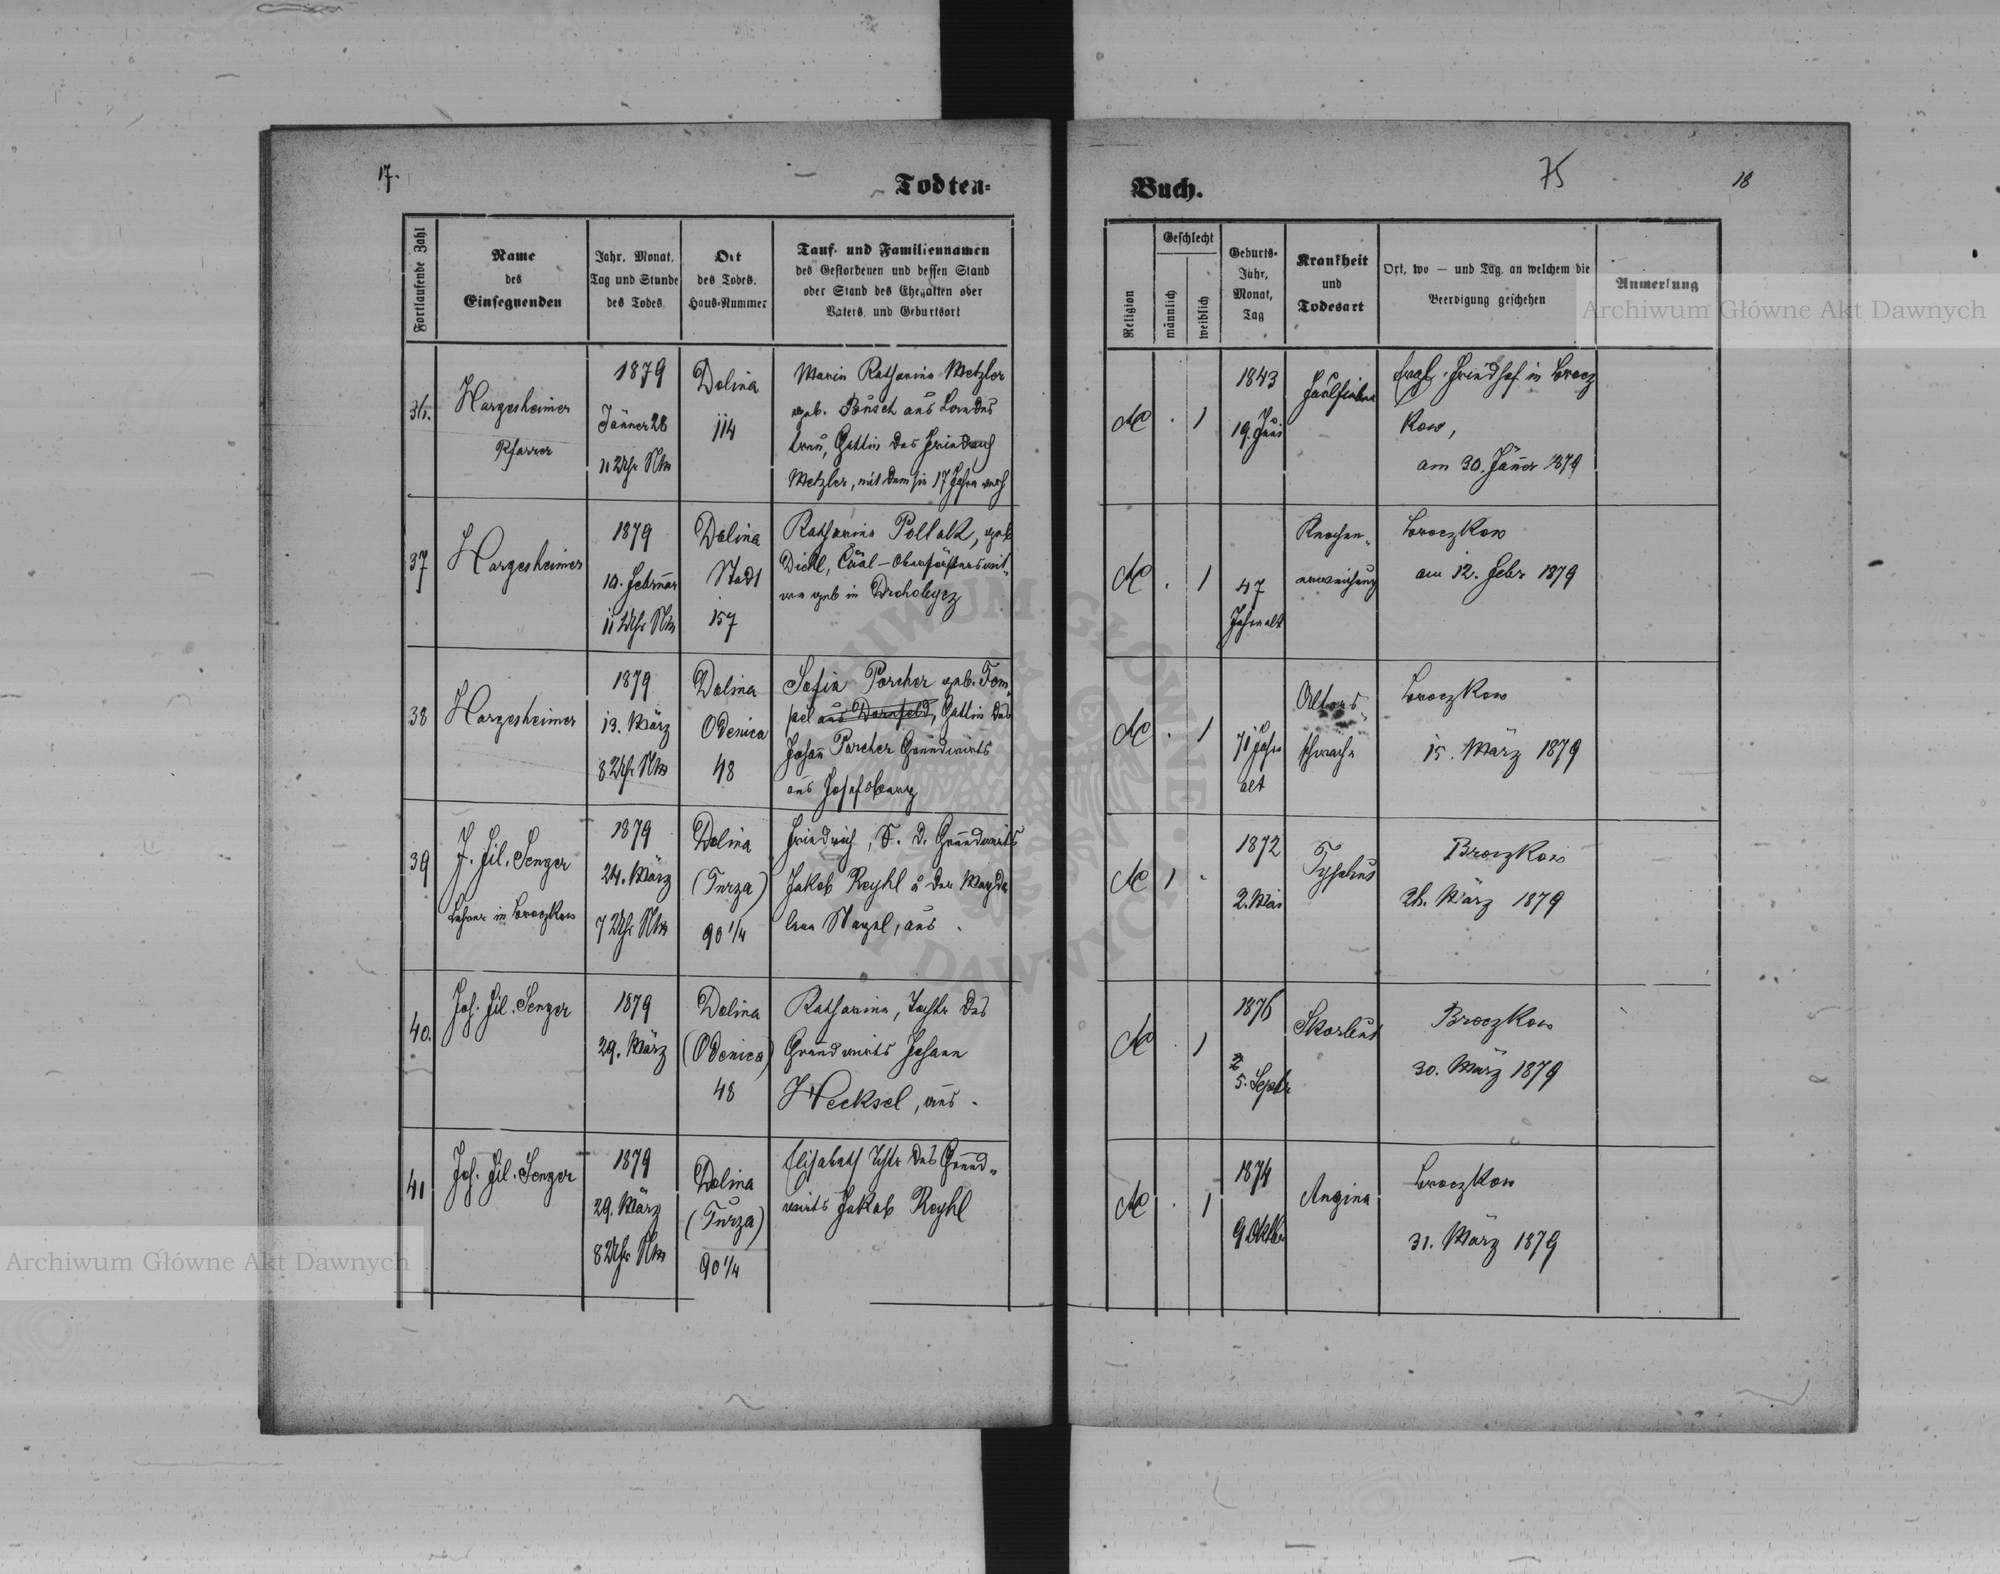 17.
Todten=
Fortlaufende Zahl
Name
des
Einsegnenden
Jahr, Monat,
Tag und Stunde
des Todes
Ort
des Todes,
Haus-Nummer
Tauf- und Familiennamen
des Gestorbenen und dessen Stand
oder Stand des Ehegatten oder
Vaters, und Geburtsort
36.
Hargesheimer
Pfarrer
1879
Jänner 28
11 Uhr Nm
Dolina
114
Maria Katharina Metzler
geb. Busch aus Landes
treu, Gattin des Friedrich
Metzler, mit dem sie 17 Jahre verh
37
Hargesheimer
1879
10. Februar
11 Uhr Nm
Dolina
Stadt
157
Katharina Pollak, geb
Diehl, Cäal-Oberförsterswit-
we geb in Drohobycz
38
Hargesheimer
1879
13. März
8 Uhr Nm
Dolina
Odenica
48
Sofia Porcher geb. Tom-
pel aus Dornfeld, Gattin des
Johan Porcher Grundwirts
aus Josefsberg
39
J. Fil. Senger
Lehrer in Broczkow
1879
24. März
7 Uhr Nm
Dolina
(Turza)
90 1/4
Friedrich, S. d. Grundwirts
Jakob Reyhl u der Magda
lena Nagel, aus .
40.
Joh. Fil. Senger
1879
29. März
Dolina
(Odenica)
48
Katharina, Tochtr des
Grundwirts Johann
Hecksel, aus .
41
Joh. Fil. Senger
1879
29. März
8 Uhr Nm
Dolina
(Turza)
90 1/4
Elisabeth Tchtr des Grund-
wirts Jakob Reyhl
Buch.
75
18
Religion
Geschlecht
männlich
weiblich
Geburts-
Jahr,
Monat,
Tag
Krankheit
und
Todesart
Ort, wo — und Tag, an welchem die
Beerdigung geschehen
Anmerkung
AC . 1
1843
19. Juni
Faulfieber
Evgl. Friedhof in Brocz
kow,
am 30. Jäner 1879
AC . 1
47
Jahre alt
Knochen-
erweichung
Broczkow
am 12. Febr 1879
AC . 1
71 Jahre
alt
Alters-
schwäche
Broczkow
15. März 1879
AC 1 .
1872
2. Mai
Typhus
Broczkow
26. März 1879
AC . 1
1876
5. Septbr
Skarlat
Broczkow
30. März 1879
AC . 1
1874
9 Oktber
Angina
Broczkow
31. März 1879
Archiwum Główne Akt Dawnych
Archiwum Główne Akt Dawnych
ARCHIWUM GŁÓWNE
AKT DAWNYCH